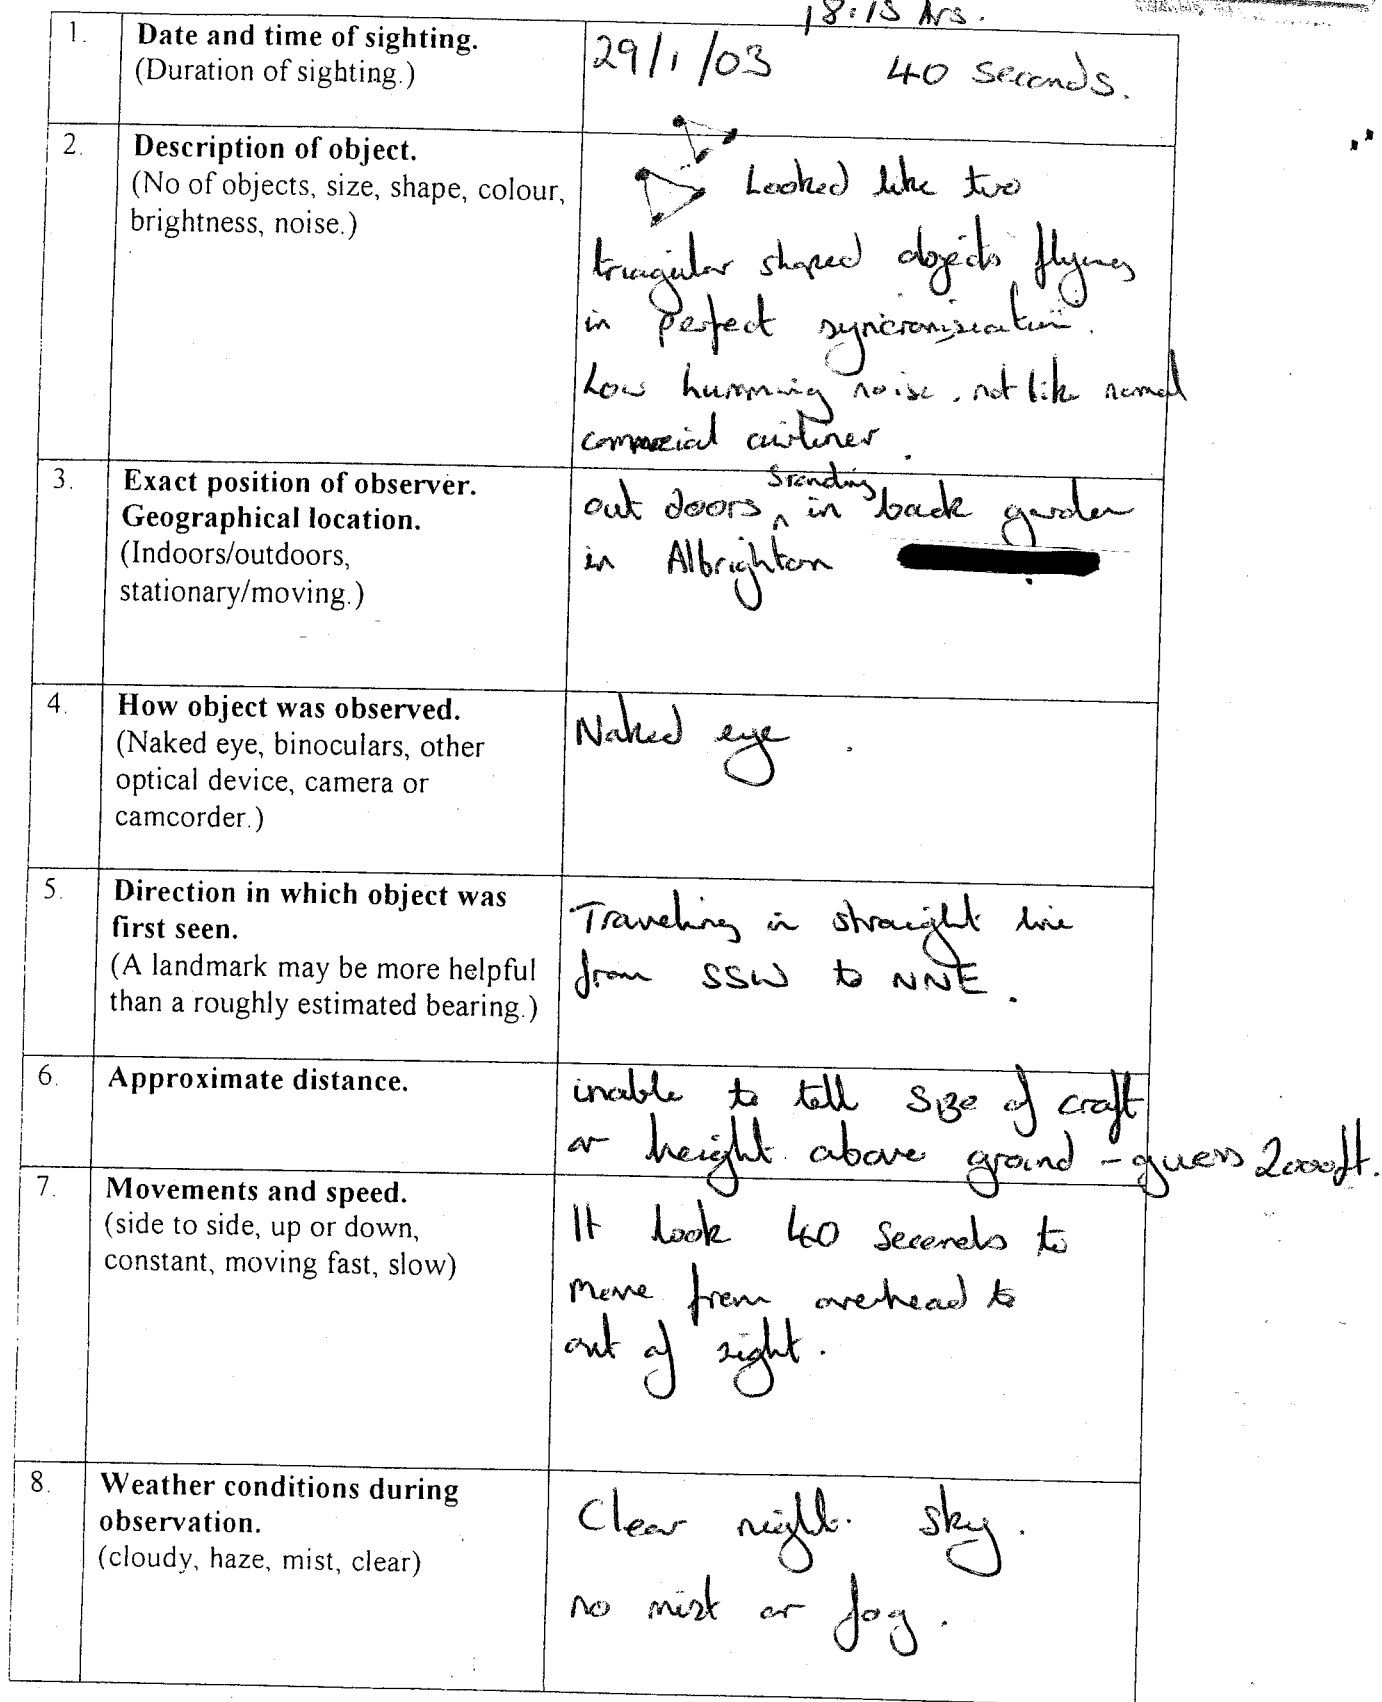 18:15 hrs.
1. Date and time of sighting.
(Duration of sighting.)
29/1/03 40 seconds.
2. Description of object.
(No of objects, size, shape, colour,
brightness, noise.)
Looked like two
triagular shaped objects flying
in perfect syncronisication.
Low humming noise. not like normal
commercial airliner.
3. Exact position of observer.
Geographical location.
(Indoors/outdoors,
stationary/moving.)
out doors standing in back garden
in Albrighton
4. How object was observed.
(Naked eye, binoculars, other
optical device, camera or
camcorder.)
Naked eye.
5. Direction in which object was
first seen.
(A landmark may be more helpful
than a roughly estimated bearing.)
Traveling in straight line
from SSW to NNE.
6. Approximate distance.
inable to tell size of craft
or height above ground - guess 2000ft.
7. Movements and speed.
(side to side, up or down,
constant, moving fast, slow)
It took 40 seconds to
move from overhead to
out of sight.
8. Weather conditions during
observation.
(cloudy, haze, mist, clear)
Clear night sky.
no mist or fog.